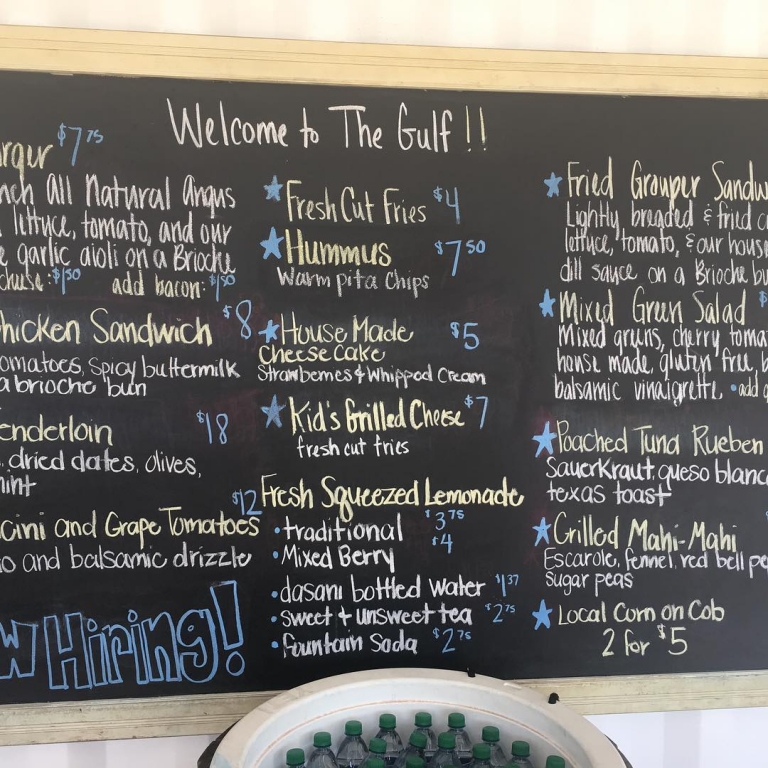 Welcome to The Gulf!!
$7.75
all natural angus
lettuce, tomato, and our
garlic aioli on a Brioche
$1.50 add bacon: $1.50
Sandwich $8
spicy buttermilk
a brioche bun
$18
dried dates, olives,
$12
and Grape Tomatoes
and balsamic drizzle
Hiring!
Fresh Cut Fries $4
Hummus $7.50
warm pita chips
House Made $5
Cheese Cake
Strawberries & Whipped Cream
Kid's Grilled Cheese $7
fresh cut fries
Fresh Squeezed Lemonade
• traditional $3.75
• Mixed Berry $4
• dasani bottled water $1.37
• sweet & unsweet tea $2.75
• fountain Soda $2.75
Fried Grouper
Lightly breaded & fried
lettuce, tomato, & our house
dill sauce on a Brioche
Mixed Green Salad $
Mixed greens, cherry
house made, gluten free,
balsamic vinaigrette • add
Poached Tuna Rueben
Sauerkraut, queso
texas toast
Grilled Mahi-Mahi
Escarole, fennel, red bell
sugar peas
Local Corn on Cob
2 for $5